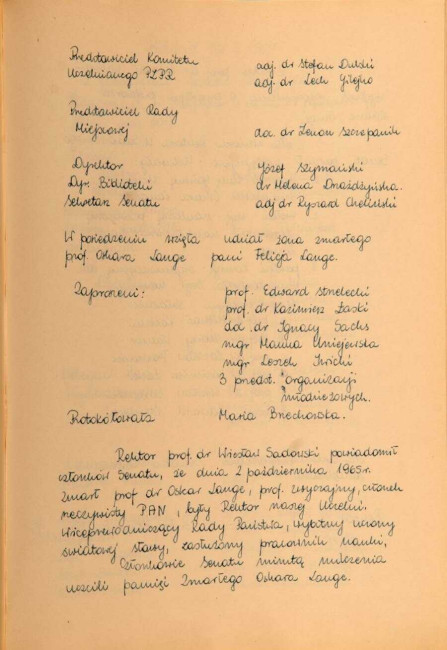 Przedstawiciel Komitetu adj. dr Stefan Dulski
Uczelnianego PZPR adj. dr Lech Gilejko
Przedstawiciel Rady
Miejscowej doc. dr Zenon Szczepanik
Dyrektor Józef Szymański
Dyr. Biblioteki dr Helena Drożdżyńska.
Sekretarz Senatu adj dr Ryszard Chelicki
W posiedzeniu wzięła udział żona zmarłego
prof. Oskara Lange pani Felicja Lange.
Zaproszeni: prof. Edward Strzelecki
prof. dr Kazimierz Łaski
doc. dr Ignacy Sachs
mgr Hanna Uniejewska
mgr Leszek
3 przedst. organizacji
młodzieżowych.
Protokółowała Maria Brzechowska.
Rektor prof. dr Wiesław Sadowski powiadomił
członków Senatu, że dnia 2 października 1965 r.
zmarł prof dr Oskar Lange, prof. zwyczajny, członek
rzeczywisty PAN, były Rektor naszej Uczelni.
Wiceprzewodniczący Rady Państwa, wybitny uczony
światowej sławy, zasłużony pracownik nauki,
Członkowie Senatu minutą milczenia
uczcili pamięć Zmarłego Oskara Lange.